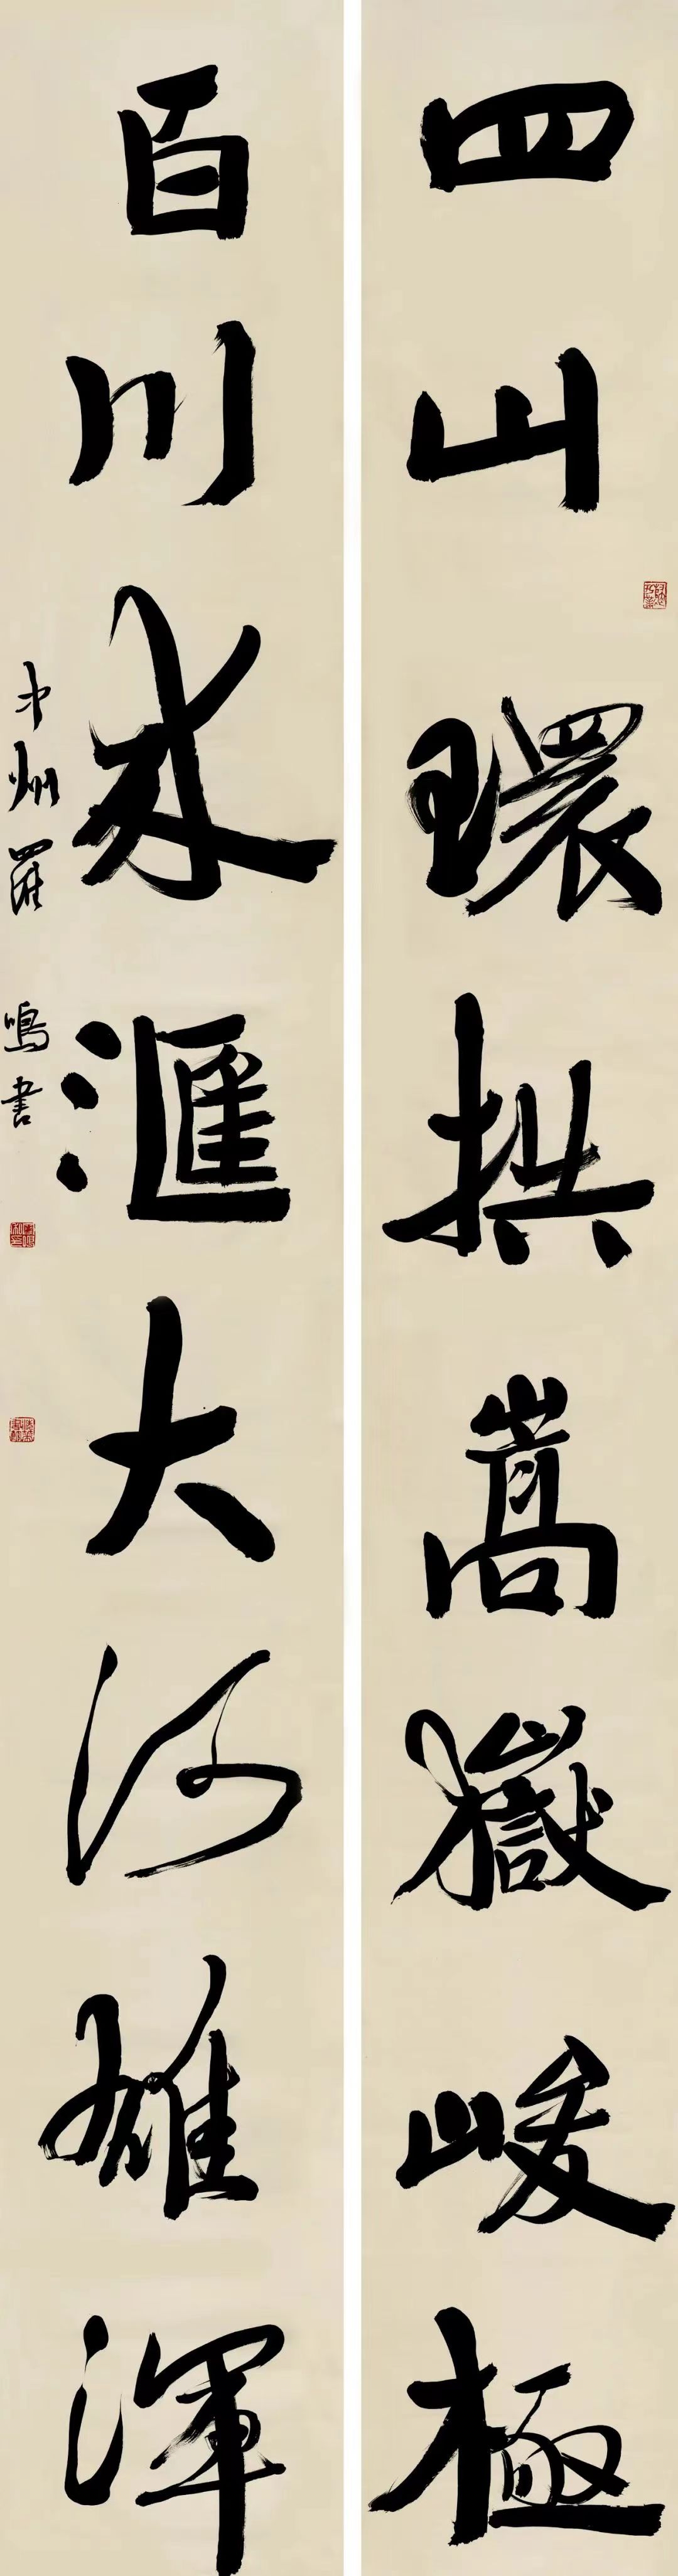 四山環拱嵩嶽峻極
百川來滙大河雄渾
中州羅鳴書